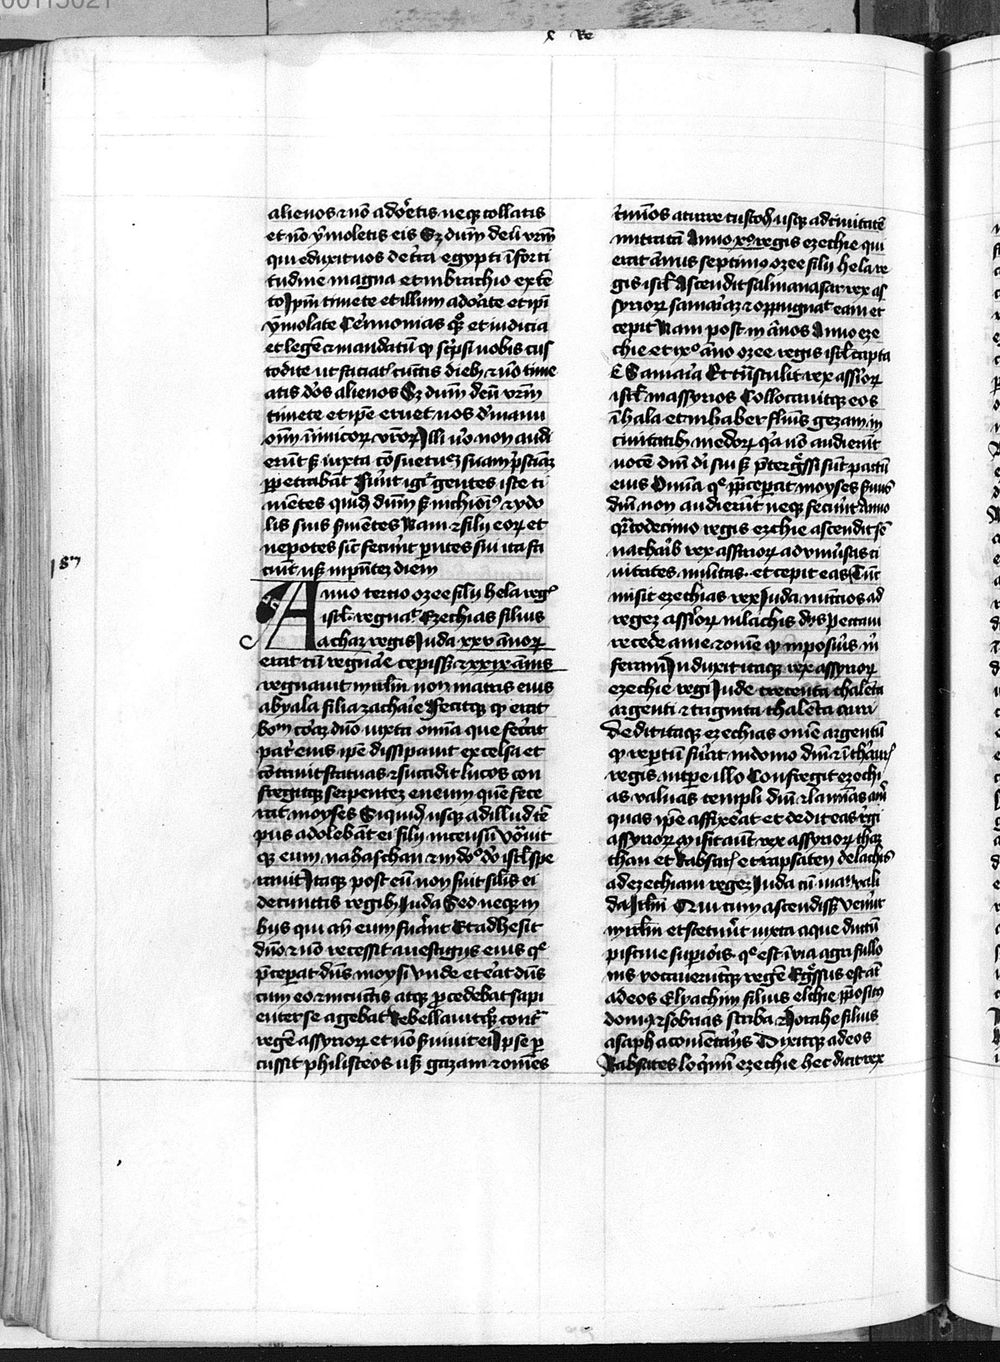 00115021
x Re
alienos ⁊ nō adōretis neqꝫ collatis
et nō ymoletis eis Sꝫ dn̄m deū vr̄m
qui eduxit vos de t̄ra egypti ī forti
tudine magna et in brachio extē
to Ip̄m timete et illum adorate et ip̄i
ymolate Cerimonias qq̄ȝ et iudicia
et legē ⁊ mandatū qꝫ sc̄psi vobis cus
todite ut faciat' cunctis diebꝫ ⁊ nō time
atis deos alienos Sꝫ dn̄m deū vr̄m
timete et ip̄e eruet vos de manu
oīm inimicoꝝ vr̄oꝝ Illi v̄o non audi
erūt sꝫ iuxta cōsuetuꝫ suam p̄stinā
ꝑpetrabāt Fūnt igr̄ gentes iste ti
mētes quidꝫ dn̄m sꝫ nichiōi9 ⁊ ydo
lis suis s̄uiētes Nam ⁊ filij eoꝝ et
nepotes sic̄ fecer̄t p̄ntes sui ita fa
ciūt usꝫ in p̄ntez diem
18m
Anno tertio ozee filij hela reḡ
isrl̄ regnāt Ezechias filius
achaz regis Iuda xxv ānoꝝ
erat cū regnar̄e cepissꝫ ⁊ xxix ānis
regnauit in irl̄m nomen matris eius
abyala filia zacharie Fecitqꝫ qꝫ erat
bom cōraꝫ dn̄o iuxta omīa que fec̄at
pat̄ eius ip̄e dissipauit excelsa et
cōtriuit statuas ⁊ succidit lucos con
fregitqꝫ serpentez eneum quē fece
rat moyses Siquidꝫ usqꝫ ad illud tē
pus adolebāt ei filij
qꝫ eum nahaschan ⁊ in dn̄o dō isrl̄ spe
rauit Itaqꝫ post eū non fuit sil̄is ei
de cunctis regibꝫ Iuda Sed neqꝫ in
bus qui an̄ eum fuer̄nt Et adhesit
dn̄o ⁊ nō recessit a uestigijs eius q̄
p̄ceperat dn̄s moysi Vnde et erat dn̄s
cum eo ⁊ in cūctis atqꝫ ꝓcedebat sapi
enter se agebat Rebellauitqꝫ cont̄
regē assyrioꝝ et nō s̄uiuit ei Ip̄se ꝑ
cussit philisteos usꝫ gazam ⁊ om̄es
t̄minos a turre custodū usqꝫ ad ciuitatē
munitā Anno xo regis ezechie qui
erat ānus septimo ozee filij hela re
gis isrl̄ Ascendit salmanasar rex as
syrioꝝ samariaꝫ ⁊ oppugnāt eam et
cepit Nam post iij ānos Anno eze
chie et ixo āno ozee regis isrl̄ capta
ē Samaria Et trāstulit rex assyrioꝝ
isrl̄ in assyrios Collocauitqꝫ eos
ī hala et in haber fluuijs gezam in
ciuitatibꝫ medoꝝ q̄a nō audierūt
vocē dn̄i dī sui sꝫ p̄tergressi sunt pactū
eius Om̄ia q̄ p̄ceperat moyses s̄uus
dn̄i non audierūt neqꝫ fecerūt Anno
q̄rtodecimo regis ezechie ascendit se
nacharib rex assyrioꝝ ad vniūsas ci
uitates munitas et cepit eas Tūc
misit ezechias rex Iuda nuncios ad
regeꝫ assyrioꝝ in lachis dn̄s peccaui
recede a me ⁊ om̄e qꝫ inposūis m̄
feram Induxit itaqꝫ rex assyrioꝝ
ezechie regi Iude trecenta thalēta
argenti ⁊ triginta thalēta auri
Dedit itaqꝫ ezechias om̄e argentū
qꝫ rep̄tū fuerat in domo dn̄i ⁊ ī thaur̄
regis in tp̄e illo Confregit ezechi
as valuas templi dn̄i ⁊ laminas auri
quas ip̄e affixerat et dedit eas regi
assyrioꝝ Misit aut̄ rex assyrioꝝ thar
than et Rabsar̄ et rapsaten de lachis
ad ezechiam regeꝫ Iuda cū manu vali
da Irl̄m Qui cum ascendissꝫ venit
in irl̄m et steterūt iuxta aque ductū
piscine sup̄ioris q̄ est ī via agri fullo
nis vocaueruntqꝫ regē Egressus est at̄
ad eos Elyachim filius elchie p̄posito
domꝫ ⁊ sobnas scriba ⁊ Ioahe filius
asaph a comētarijs Dixitqꝫ ad eos
Rabsaces loquimī ezechie hec dicit rex